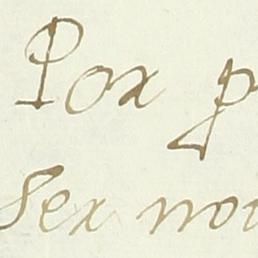 Pox p
Sex nov